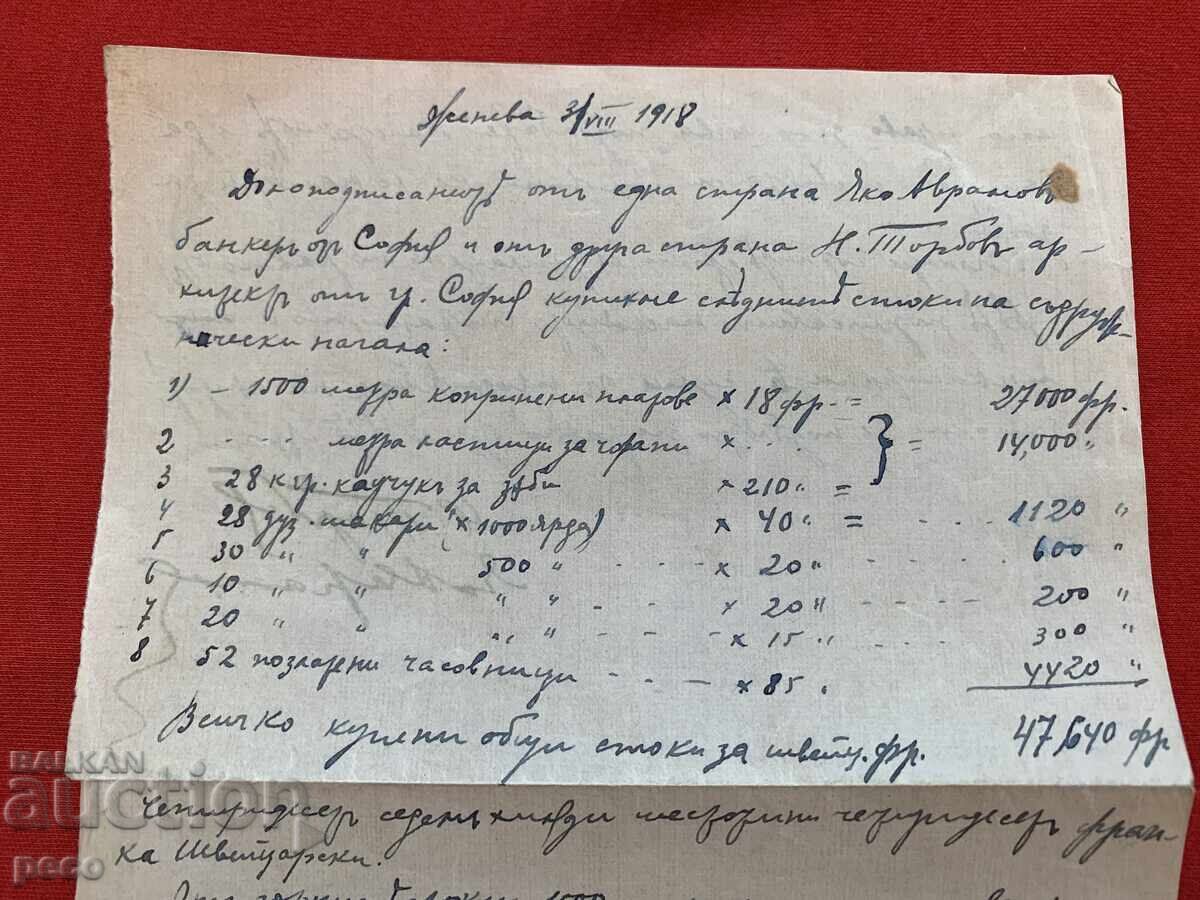 Женева 3/VIII 1918
Долоподписанитѣ отъ една страна Яко Аврамовъ
банкеръ отъ София и отъ друга страна Н. Торбовъ ар-
отъ гр. София купихме слѣднитѣ стоки на съдруж-
нически начала:
1) – 1500 метра копринени платове × 18 фр. = 27000 фр.
2 - - - метра ластици за чорапи × . . } = 14,000 "
3 28 кгр. каучукъ за зѫби × 210 " =
4 28 дуз. макари (× 1000 ярда) × 40 " = - - - 1120 "
5 30 " " 500 " × 20 " - - - 600 "
6 10 " " " " - - - × 20 " - - - - 200 "
7 20 " " " " - - - - × 15 " - - - 300 "
8 52 позлатени часовници - - - × 85 " 4420 "
Всичко купени общи стоки за швейц. фр. 47,640 фр
Четиридесеть седемь хиляди шестотини четиридесеть фран-
ка Швейцарски.
1000
BALKAN
auction
peco